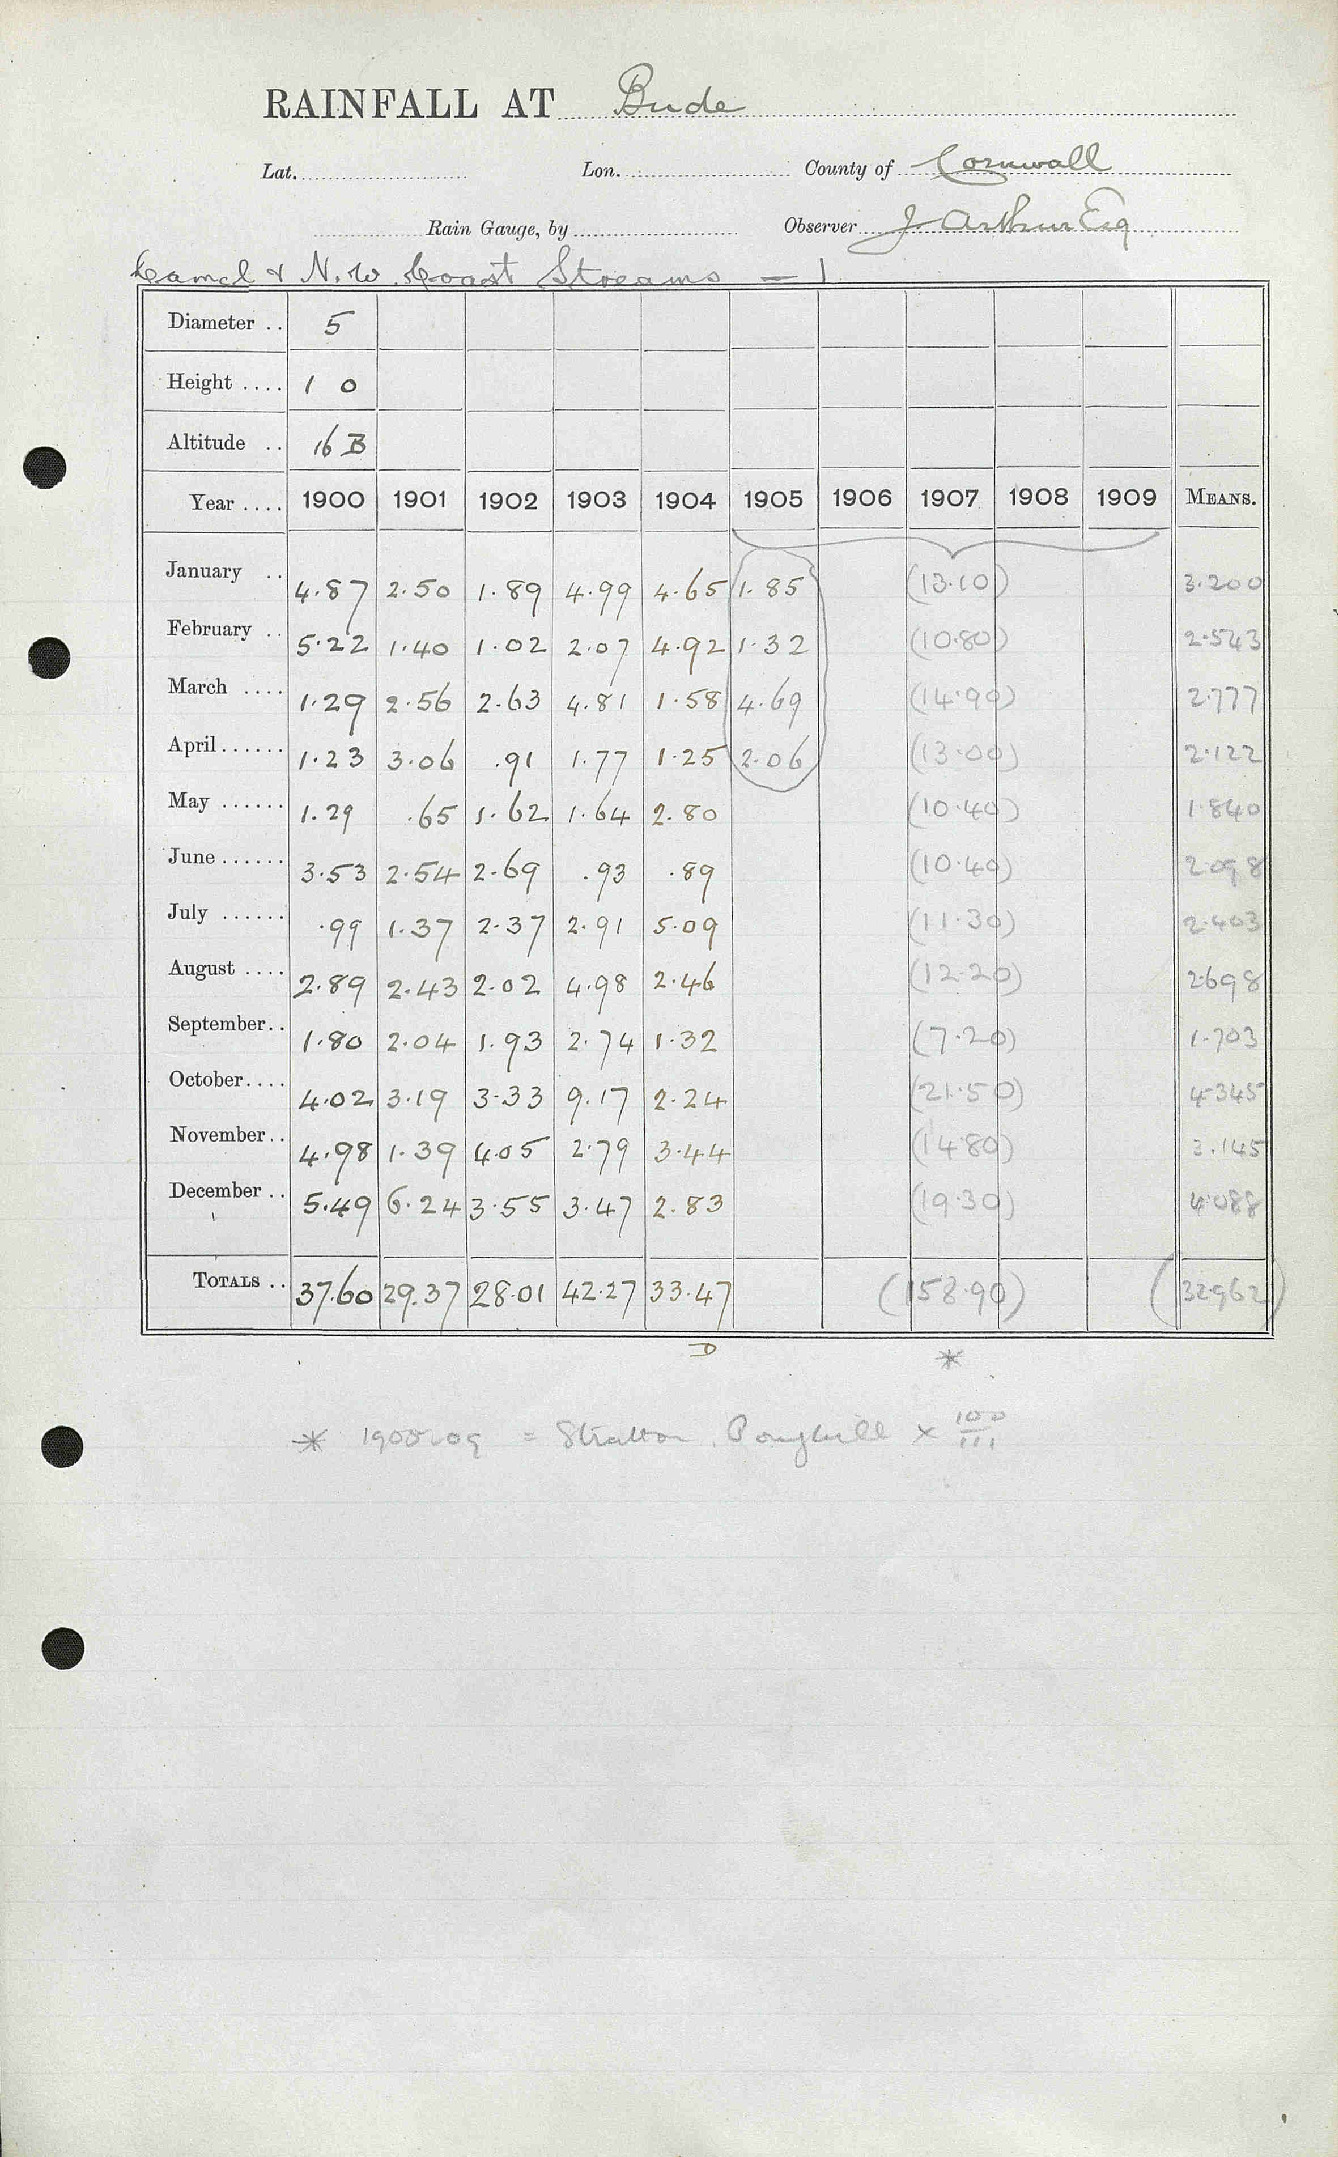 RAINFALL AT Bude
Lat. Lon. County of Cornwall
Rain Gauge, by Observer J. Arthur Esq
Camel & N.W. Coast Streams — 1
Diameter .. 5
Height .... 1 0
Altitude .. 16 B
Year .... 1900 1901 1902 1903 1904 1905 1906 1907 1908 1909 MEANS.
January .. 4.87 2.50 1.89 4.99 4.65 1.85 (13.10) 3.200
February .. 5.22 1.40 1.02 2.07 4.92 1.32 (10.80) 2.543
March .... 1.29 2.56 2.63 4.81 1.58 4.69 (14.90) 2.777
April ...... 1.23 3.06 .91 1.77 1.25 2.06 (13.00) 2.122
May ...... 1.29 .65 1.62 1.64 2.80 (10.40) 1.840
June ...... 3.53 2.54 2.69 .93 .89 (10.40) 2.098
July ...... .99 1.37 2.37 2.91 5.09 (11.30) 2.403
August .... 2.89 2.43 2.02 4.98 2.46 (12.20) 2.698
September.. 1.80 2.04 1.93 2.74 1.32 (7.20) 1.703
October.... 4.02 3.19 3.33 9.17 2.24 (21.50) 4.345
November.. 4.98 1.39 4.05 2.79 3.44 (14.80) 3.145
December .. 5.49 6.24 3.55 3.47 2.83 (19.30) 4.088
TOTALS .. 37.60 29.37 28.01 42.27 33.47 (158.90) (32.962)
D *
* 1905-09 = Stratton, Poughill × 100/111